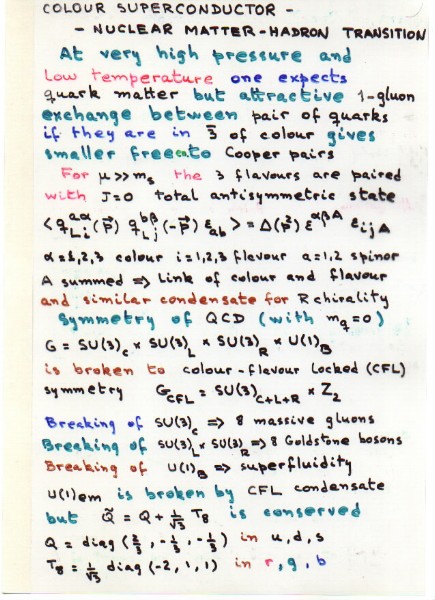 COLOUR SUPERCONDUCTOR -
- NUCLEAR MATTER-HADRON TRANSITION
At very high pressure and
Low temperature one expects
quark matter but attractive 1-gluon
exchange between pair of quarks
if they are in 3̅ of colour gives
smaller free to Cooper pairs
For μ >> mₛ the 3 flavours are paired
with J=0 total antisymmetric state
<q_{Li}^{aα}(p⃗) q_{Lj}^{bβ}(-p⃗) ε_{ab}> = Δ(p⃗²) ε^{αβA} ε_{ijA}
α=1,2,3 colour i=1,2,3 flavour a=1,2 spinor
A summed => Link of colour and flavour
and similar condensate for R chirality
Symmetry of QCD (with m_q=0)
G = SU(3)_c × SU(3)_L × SU(3)_R × U(1)_B
is broken to colour-flavour Locked (CFL)
symmetry G_{CFL} = SU(3)_{C+L+R} × Z₂
Breaking of SU(3)_c => 8 massive gluons
Breaking of SU(3)_L × SU(3)_R => 8 Goldstone bosons
Breaking of U(1)_B => superfluidity
U(1)em is broken by CFL condensate
but Q̃ = Q + 1/√3 T₈ is conserved
Q = diag (2/3, -1/3, -1/3) in u,d,s
T₈ = 1/√3 diag (-2, 1, 1) in r, g, b